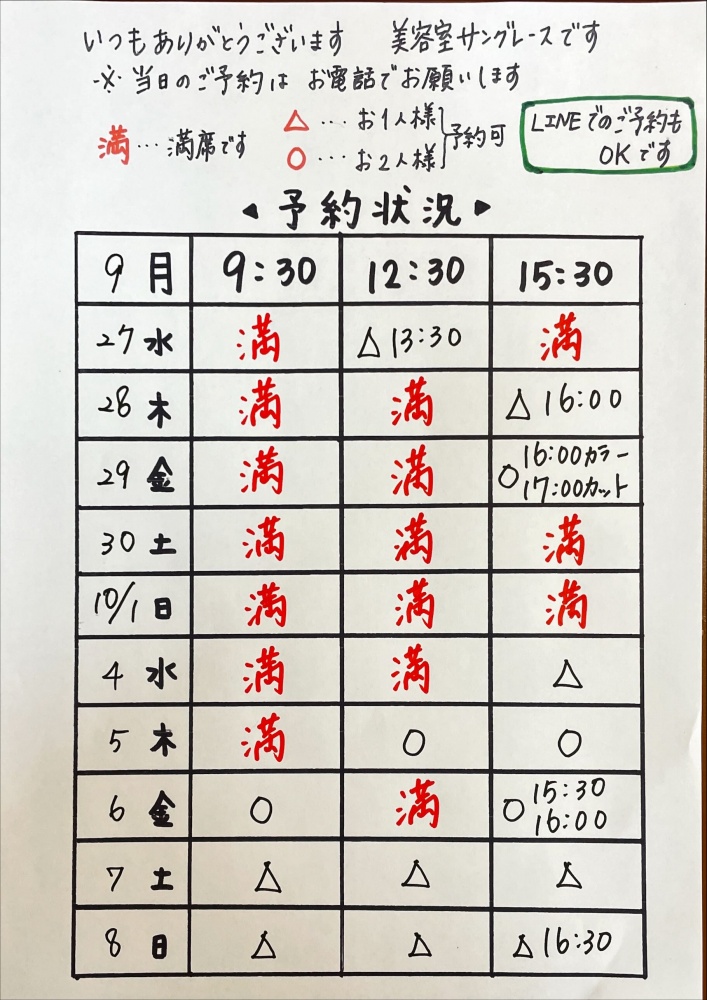 いつもありがとうございます 美容室サングレースです
※当日のご予約は お電話でお願いします
満…満席です
△…お1人様
○…お2人様
予約可
LINEでのご予約も
OKです
◀予約状況▶
9月 9:30 12:30 15:30
27水 満 △13:30 満
28木 満 満 △16:00
29金 満 満 ○16:00カラー
17:00カット
30土 満 満 満
10/1日 満 満 満
4水 満 満 △
5木 満 ○ ○
6金 ○ 満 ○15:30
16:00
7土 △ △ △
8日 △ △ △16:30